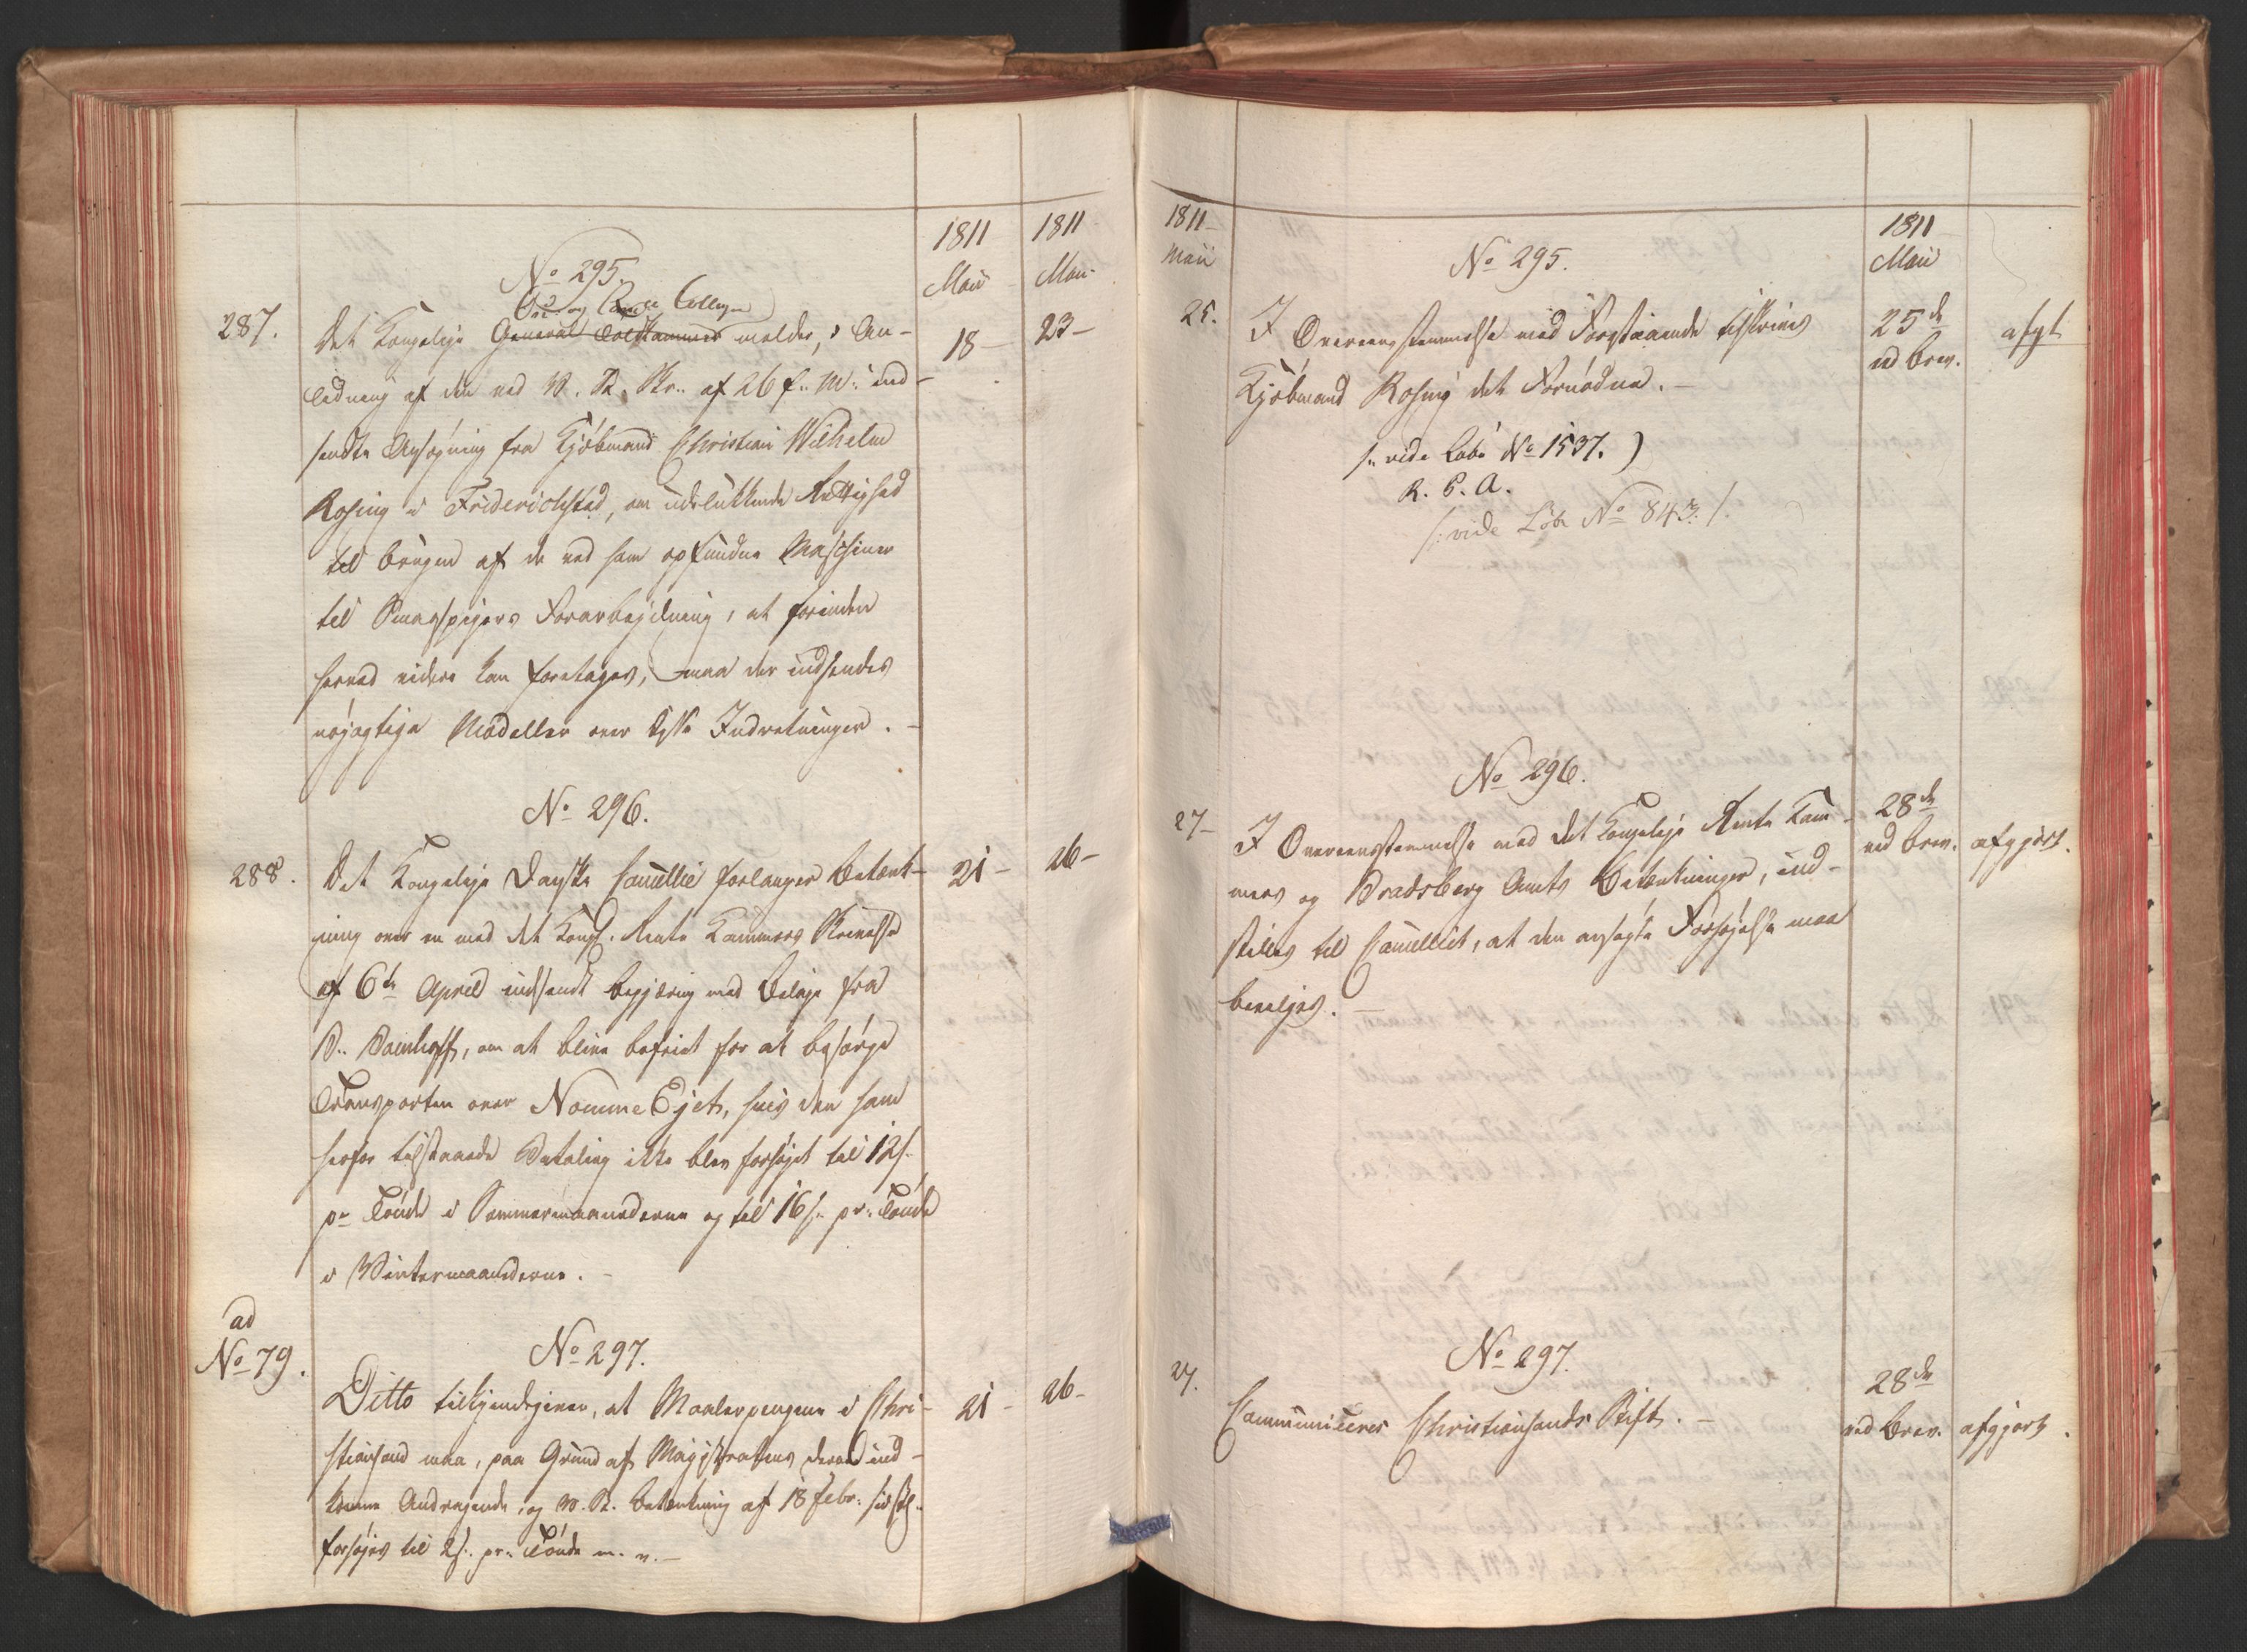 1811
Maii
1811
Maii
No 295.
Oec og Com Colleg
287.
Det Kongelige General Toldkammer melder, i An-
18 -
23 -
ledning af den ved R. K. Skr. af 26 f. M. ind-
sendte Ansøgning fra Kjøbmand Christian Wilhelm
Rosing i Friderichstad, om udelukkende Rettighed
til Brugen af de ved ham opfundne Maschiner
til Smaaspigers Forarbejdning, at forinden
herved videre kan foretages, maa der indsendes
nøjagtige Modeller over disse Indretninger. -
No 296.
288.
Det Kongelige Danske Cancellie forlanger Betænk-
21 -
26 -
ning over en med det Kongl. Rente Kammers Skrivelse
af 6te April indsendt begjæring med Bilage fra
om at blive befriet for at besørge
Transporten over Nomme Ejet, hvis den ham
herfor tilstaaede Betaling ikke blev forhøjet til 12 s.
pr Tønde i Sommermaanederne og til 16 s. pr. Tønde
i Vintermaanederne. -
ad
No 79.
No 297.
Ditto tilkjendegiver, at Maalerpengene i Chri-
21 -
26 -
stiansand maa, paa Grund af Magistratens derom ind-
komne Andragende, og R. K. Betænkning af 18 Febr. sidstl.
forhøjes til 2 s. pr. Tønde m. v. -
1811
Maii
1811
Maii
No 295.
25.
I Overeensstemmelse med Forestaaende tilskrives
25de
ved Brev.
afgt
Kjøbmand Rosing det Fornødne. -
/: vide Løbe No 1537. )
R. P. A.
/: vide Løbe No 843. /.
No 296.
27 -
I Overeensstemmelse med det Kongelige Rente Kam-
28de
ved Brev.
afgjort.
mers og Bradsberg Amts Betænkninger, ind-
stilles til Cancelliet, at den ansøgte Forhøjelse maa
bevilges. -
No 297.
27.
Communiceres Christiansands Stift. -
28de
ved Brev.
afgjort.